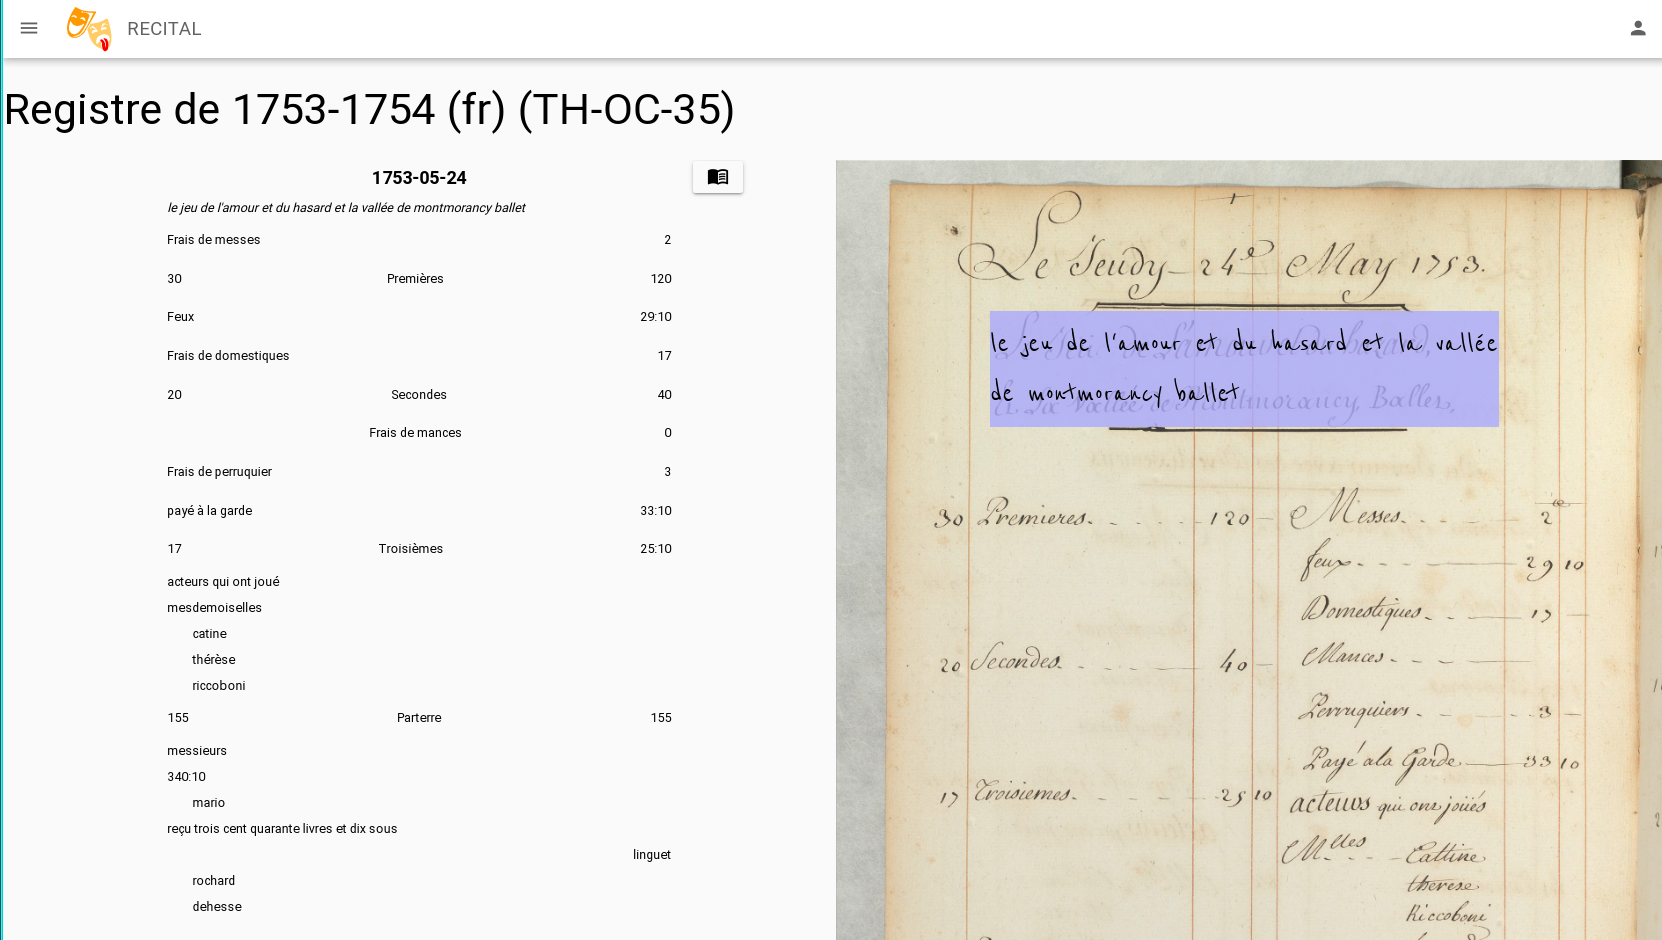 RECITAL
Registre de 1753-1754 (fr) (TH-OC-35)
1753-05-24
le jeu de l'amour et du hasard et la vallée de montmorancy ballet
Frais de messes 2
30 Premières 120
Feux 29:10
Frais de domestiques 17
20 Secondes 40
Frais de mances 0
Frais de perruquier 3
payé à la garde 33:10
17 Troisièmes 25:10
acteurs qui ont joué
mesdemoiselles
catine
thérèse
riccoboni
155 Parterre 155
messieurs
340:10
mario
reçu trois cent quarante livres et dix sous
linguet
rochard
dehesse
Le Jeudy 24e May 1753.
le jeu de l'amour et du hasard et la vallée
de montmorancy ballet
30 Premieres. 120 Messes. 2
feux. 29 10
Domestiques. 17
20 Secondes. 40 Mances.
Perruquiers 3
Payé a la Garde 33 10
17 Troisiemes. 25 10 acteurs qui ont joüés
Mlles Cattine
therese
Riccoboni